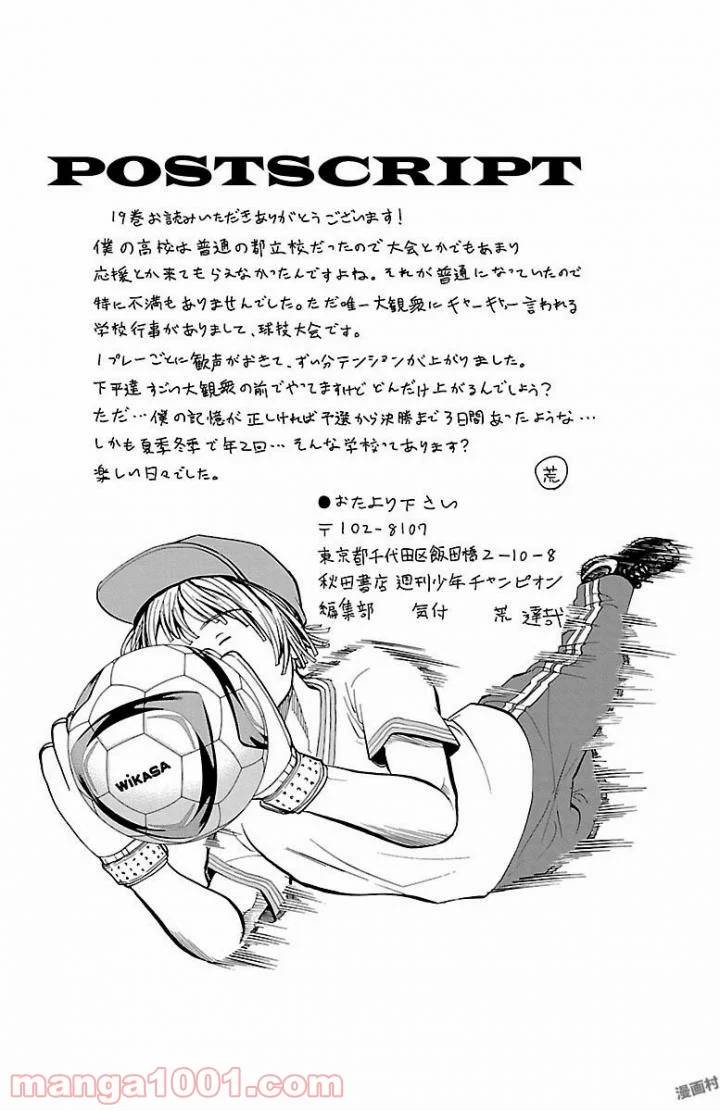 POSTSCRIPT
19巻お読みいただきありがとうございます!
僕の高校は普通の都立校だったので大会とかでもあまり
応援とか来てもらえなかったんですよね。それが普通になっていたので
特に不満もありませんでした。ただ唯一大観衆にキャーキャー言われる
学校行事がありまして、球技大会です。
1プレーごとに歓声がおきて、ずい分テンションが上がりました。
下平達すごい大観衆の前でやってますけどどんだけ上がるんでしょう?
ただ…僕の記憶が正しければ予選から決勝まで3日間あったような…
しかも夏季冬季で年2回…そんな学校ってあります?
楽しい日々でした。
荒
●おたより下さい
〒102-8107
東京都千代田区飯田橋2-10-8
秋田書店 週刊少年チャンピオン
編集部 気付 荒 達哉
WiKASA
manga1001.com
漫画村